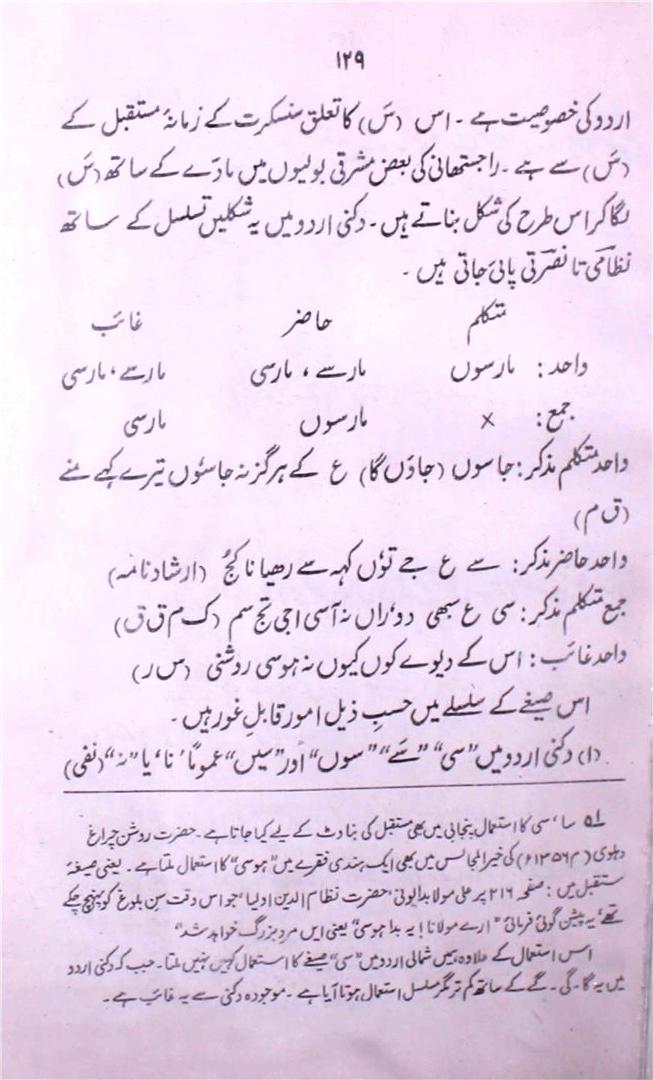 ۱۲۹
اردو کی خصوصیت ہے ۔ اس (سَ) کا تعلق سنسکرت کے زمانۂ مستقبل کے
(سَ) سے ہے ۔ راجستھانی کی بعض مشرقی بولیوں میں مادّے کے ساتھ (سَ)
لگا کر اس طرح کی شکل بناتے ہیں ۔ دکنی اردو میں یہ شکلیں تسلسل کے ساتھ
نظامی تا نصرتی پائی جاتی ہیں ۔
متکلم حاضر غائب
واحد : مارسوں مارسے ، مارسی مارسے ، مارسی
جمع : × مارسوں مارسی
واحد متکلم مذکر : جاسوں (جاؤں گا) ع کے ہرگز نہ جاسوں تیرے کہے منے
(ق م)
واحد حاضر مذکر : سے ع جے توں کہہ سے رھیا نا کُج (ارشاد نامہ)
جمع متکلم مذکر : سی ع سبھی دوراں نہ آسی اجی تج سم (ک م ق ق)
واحد غائب : اس کے دیوے کوں کیوں نہ ہوسی روشنی (س ر)
اس صیغے کے سلسلے میں حسبِ ذیل امور قابلِ غور ہیں ۔
(۱) دکنی اردو میں "سی" "سے" "سوں" اور "سیں" عموماً 'نا' یا "نہ" (نفی)
۱ے سا ' سی کا استعمال پنجابی میں بھی مستقبل کی بناوٹ کے لیے کیا جاتا ہے ۔ حضرت روشن چراغ
دہلوی (م ۱۳۵۶ء) کی خیرالمجالس میں بھی ایک ہندی فقرے میں "ہوسی" کا استعمال ملتا ہے ۔ یعنی صیغۂ
مستقبل میں : صفحہ ۲۱۶ پر علی مولا بدایونی 'حضرت نظام الدین اولیا' جو اس وقت سنِ بلوغ کو پہنچ چکے
تھے' یہ پیشن گوئی فرمائی "ارے مولانا ! یہ بڈا ہوسی" یعنی ایں مرد بزرگ خواہد شد"
اس استعمال کے علاوہ ہمیں شمالی اردو میں "سی" صیغے کا استعمال کہیں نہیں ملتا ۔ جب کہ دکنی اردو
میں یہ گا ۔ گی ۔ گے کے ساتھ کم تر مگر مسلسل استعمال ہوتا آیا ہے ۔ موجودہ دکنی سے یہ غائب ہے ۔